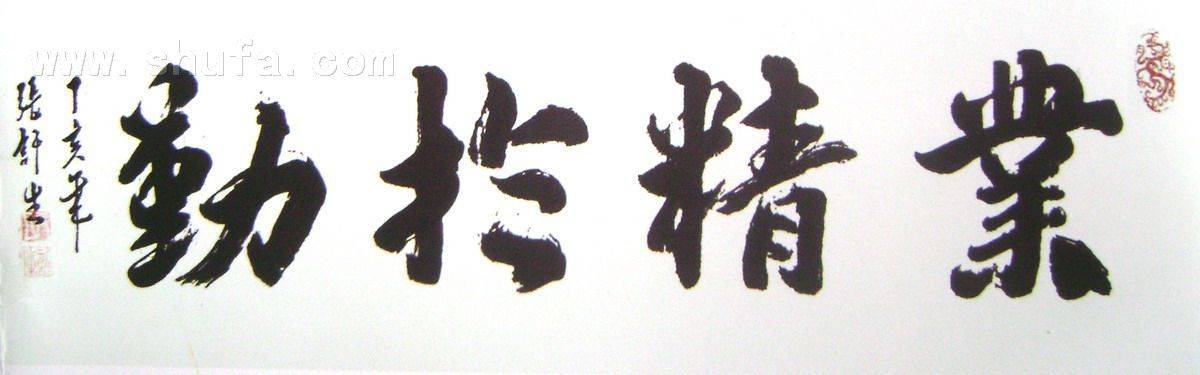 業精於勤
丁亥年
張舒生
www.shufa.com